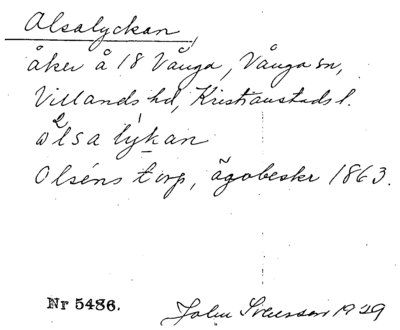 Olsalyckan,
åker å 18 Vånga, Vånga sn,
Villands hd, Kristianstads l.
ω2lsa lykan
Olséns torp, ägobeskr 1863.
Nr 5486.
John Svensson 1929